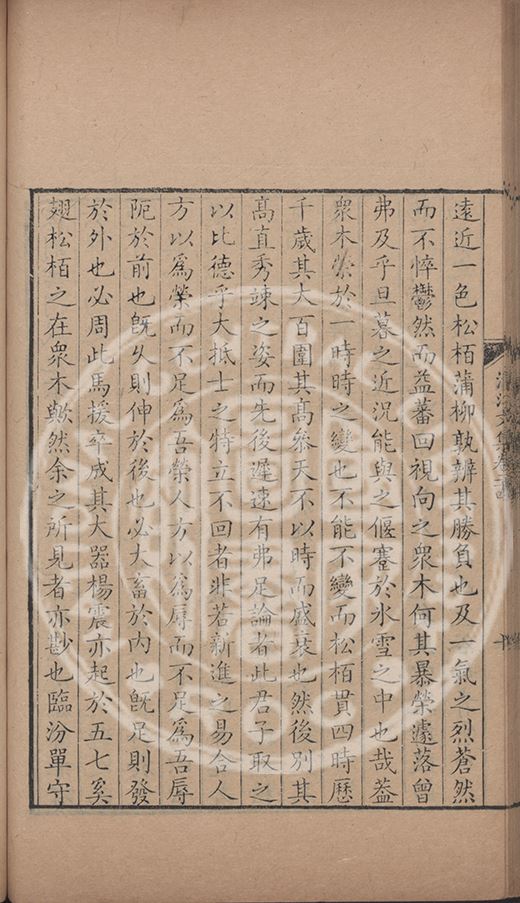 遠近一色松栢蒲柳孰辨其勝負也及一氣之烈蒼然
而不悴鬱然而益蕃回視向之衆木何其暴榮遽落曾
弗及乎旦暮之近況能與之偃蹇於氷雪之中也哉葢
衆木榮於一時時之變也不能不變而松栢貫四時歷
千歲其大百圍其髙叅天不以時而盛衰也然後別其
髙直秀竦之姿而先後遲速有弗足論者此君子取之
以比德乎大抵士之特立不回者非若新進之易合人
方以爲榮而不足爲吾榮人方以爲辱而不足爲吾辱
阨於前也旣久則伸於後也必大畜於内也旣足則發
於外也必周此馬援卒成其大器楊震亦起於五七奚
翅松栢之在衆木歟然余之所見者亦尠也臨汾單守